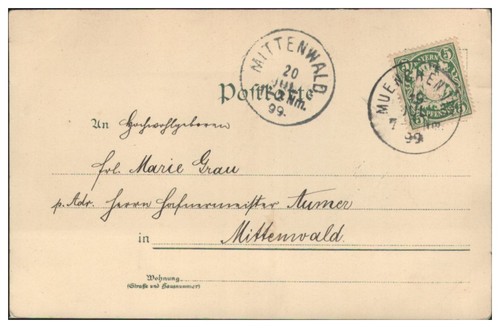 MITTENWALD
20
JUL.
Nm.
99.
Postkarte
BAYERN
5
5
5
5
MUENCHEN
7
Nm.
99
An Hochwohlgeboren
frl. Marie Grau
p. Adr. Herrn Hafnermeister Aumer
in Mittenwald.
Wohnung
(Straße und Hausnummer)